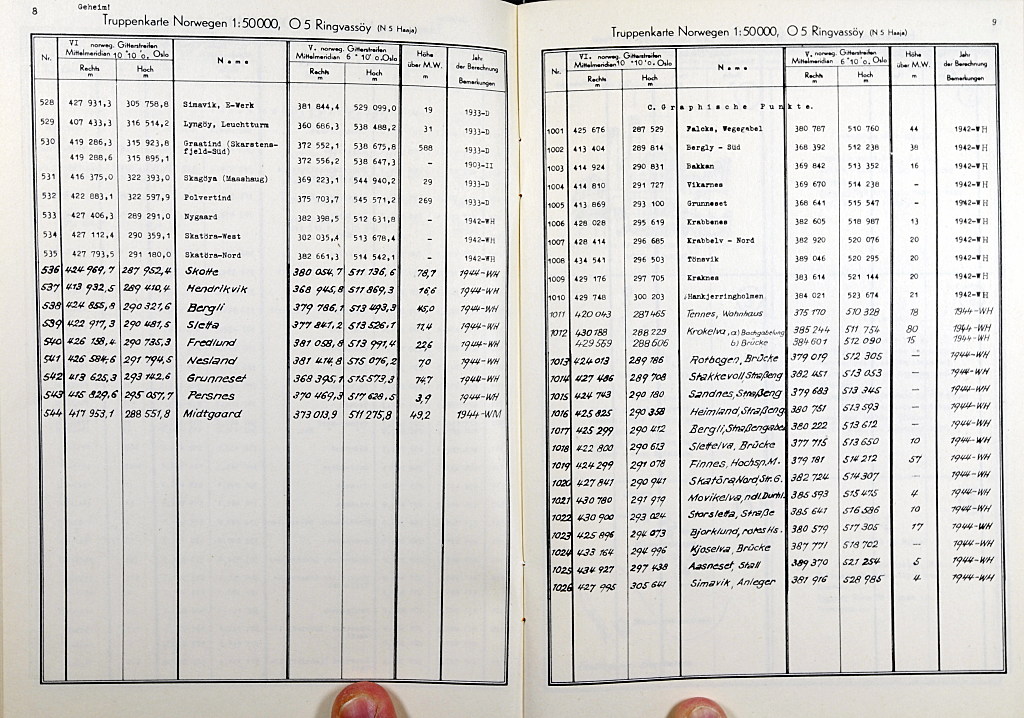 8
Geheim!
Truppenkarte Norwegen 1:50000, O 5 Ringvassöy (N 5 Haaja)
Nr.
VI norweg. Gitterstreifen
Mittelmeridian 10°10'ö. Oslo
Rechts m
Hoch m
Name
V. norweg. Gitterstreifen
Mittelmeridian 6°10'ö. Oslo
Rechts m
Hoch m
Höhe über M.W. m
Jahr der Berechnung
Bemerkungen
528 427 931,3 305 758,8 Simavik, E-Werk 381 844,4 529 099,0 19 1933-D
529 407 433,3 316 514,2 Lyngöy, Leuchtturm 360 686,3 538 488,2 31 1933-D
530 419 286,3 315 923,8 Graatind (Skarstens- 372 552,1 538 675,8 588 1933-D
419 288,6 315 895,1 fjeld-Süd) 372 556,2 538 647,3 – 1903-II
531 416 375,0 322 393,0 Skagöya (Maashaug) 369 223,1 544 940,2 29 1933-D
532 422 883,1 322 597,9 Polvertind 375 703,7 545 571,2 269 1933-D
533 427 406,3 289 291,0 Nygaard 382 398,5 512 631,8 – 1942-WH
534 427 112,4 290 359,1 Skatöra-West 382 035,4 513 678,4 – 1942-WH
535 427 793,5 291 180,0 Skatöra-Nord 382 661,3 514 542,1 – 1942-WH
536 424 969,7 287 952,4 Skatte 380 054,7 511 136,6 78,7 1944-WH
537 413 932,5 289 410,4 Hendrikvik 368 945,8 511 869,3 16,6 1944-WH
538 424 855,8 290 321,6 Bergli 379 786,1 513 493,3 45,0 1944-WH
539 422 917,3 290 481,5 Sletta 377 841,2 513 526,1 11,4 1944-WH
540 426 158,4 290 735,3 Fredlund 381 058,8 513 991,4 22,6 1944-WH
541 426 584,6 291 794,5 Nesland 381 414,8 515 076,2 7,0 1944-WH
542 413 625,3 293 142,6 Grunneset 368 395,1 515 573,3 14,7 1944-WH
543 415 829,6 295 057,7 Persnes 370 469,3 517 628,5 3,9 1944-WH
544 417 953,1 288 551,8 Midtgaard 373 013,9 511 275,8 49,2 1944-WM
9
Truppenkarte Norwegen 1:50000, O 5 Ringvassöy (N 5 Haaja)
Nr.
VI. norweg. Gitterstreifen
Mittelmeridian 10°10'ö. Oslo
Rechts m
Hoch m
Name
V. norweg. Gitterstreifen
Mittelmeridian 6°10'ö. Oslo
Rechts m
Hoch m
Höhe über M.W. m
Jahr der Berechnung
Bemerkungen
C. Graphische Punkte.
1001 425 676 287 529 Falcks, Wegegabel 380 787 510 760 44 1942-WH
1002 413 404 289 814 Bergly - Süd 368 392 512 238 38 1942-WH
1003 414 924 290 831 Bakkan 369 842 513 352 16 1942-WH
1004 414 810 291 727 Vikarnes 369 670 514 238 – 1942-WH
1005 413 869 293 100 Grunneset 368 641 515 547 – 1942-WH
1006 428 028 295 619 Krabbenes 382 605 518 987 13 1942-WH
1007 428 414 296 685 Krabbelv - Nord 382 920 520 076 20 1942-WH
1008 434 541 296 503 Tömsvik 389 046 520 295 20 1942-WH
1009 429 176 297 705 Kraknes 383 614 521 144 20 1942-WH
1010 429 748 300 203 Hankjerringholmen 384 021 523 674 21 1942-WH
1011 420 043 287 465 Tennes, Wohnhaus 375 170 510 328 18 1944-WH
1012 430 188 288 229 Krokelva, a) Bachgabelung 385 244 511 754 80 1944-WH
429 559 288 606 b) Brücke 384 601 512 090 15 1944-WH
1013 424 013 289 786 Rotbogen, Brücke 379 019 512 305 — 1944-WH
1014 427 486 289 708 Stakkevoll, Straßeng 382 451 513 053 — 1944-WH
1015 424 743 290 180 Sandnes, Straßeng 379 683 513 345 — 1944-WH
1016 425 825 290 358 Heimland, Straßeng 380 751 513 593 — 1944-WH
1017 425 299 290 412 Bergli, Straßengabel 380 222 513 612 — 1944-WH
1018 422 800 290 613 Slettelva, Brücke 377 715 513 650 10 1944-WH
1019 424 299 291 078 Finnes, Hochsp.M. 379 181 514 212 57 1944-WH
1020 427 841 290 941 Skatöra, Nord, Str.G. 382 724 514 307 — 1944-WH
1021 430 780 291 919 Movikelva, ndl. Durchl. 385 593 515 475 4 1944-WH
1022 430 900 293 024 Storsletta, Straße 385 641 516 586 10 1944-WH
1023 425 896 294 073 Bjorklund, rotes Hs. 380 579 517 305 17 1944-WH
1024 433 164 294 996 Kjoselva, Brücke 387 771 518 702 — 1944-WH
1025 434 927 297 438 Aasneset, Stall 389 370 521 254 5 1944-WH
1026 427 995 305 641 Simavik, Anleger 381 916 528 985 4 1944-WH